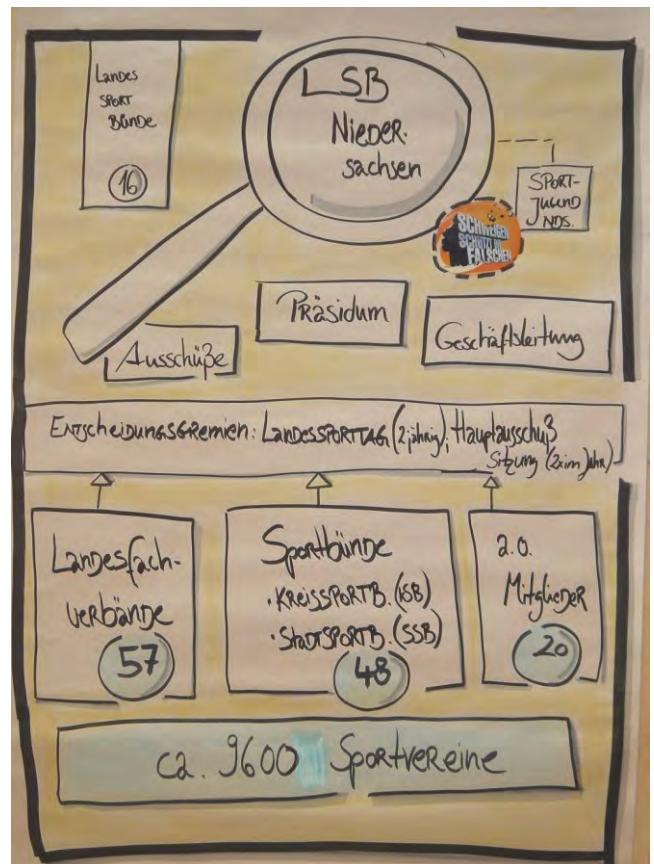 Landes
Sport
Bünde
16
LSB
Nieder-
sachsen
Sport-
jugend
NDS.
SCHWEIGEN
SCHÜTZT DIE
FALSCHEN
Präsidum
Ausschüße
Geschäftsleitung
Entscheidungsgremien: Landessporttag (2 jährig); Hauptausschuß
Sitzung (2x im Jahr)
Landesfach-
verbände
57
Sportbünde
· Kreissportb. (KSB)
· Stadtsportb. (SSB)
48
2.0.
Mitglieder
20
ca. 9600 Sportvereine